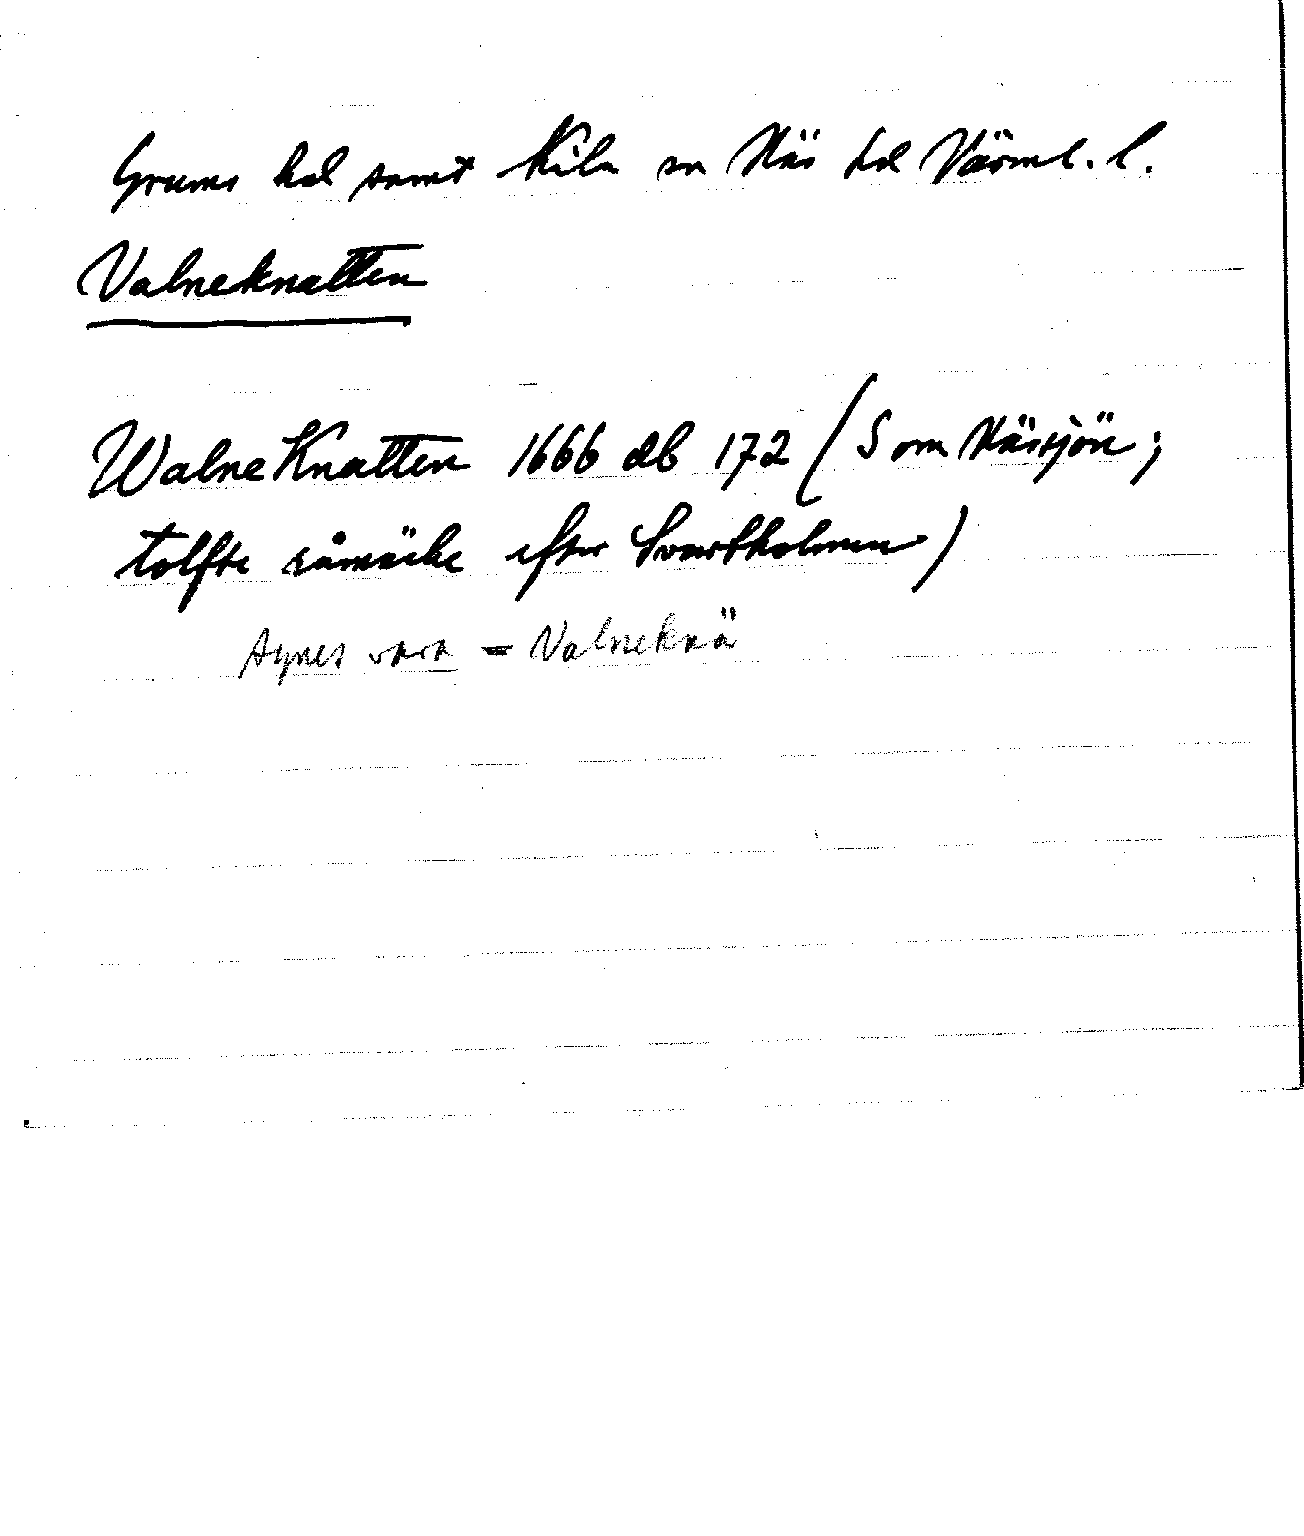 Grums hd samt Kila sn Näs hd Värml. l.
Valneknatten
Walne Knatten 1666 db 172 (S om Nässjön;
tolfte råmärke efter Svartholmen)
Synes vara = Valneknä